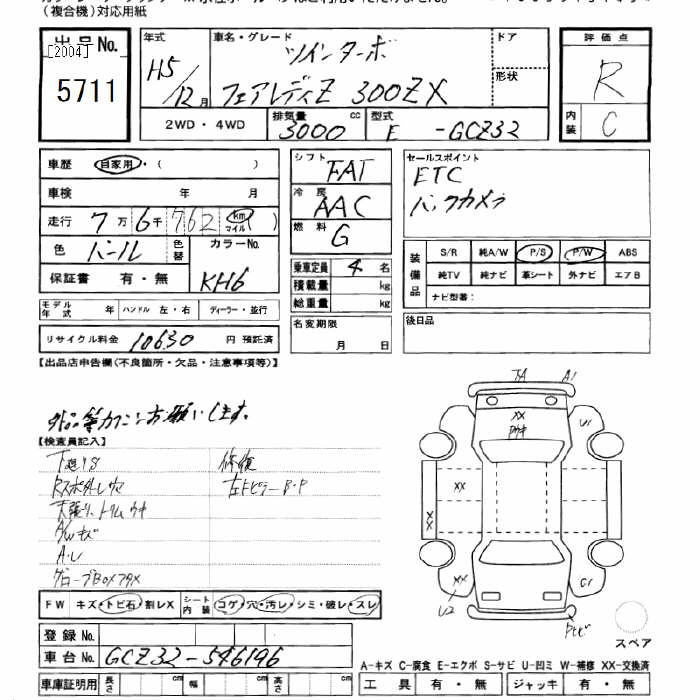 （複合機）対応用紙
出品No.
[2004]
5711
年式 H5/12月
車名・グレード ツインターボ
フェアレディZ 300ZX
ドア
形状
2WD・4WD
排気量 3000 cc
型式 E -GCZ32
評価点
R
内装 C
車歴 自家用・( )
車検 年 月
走行 7万6千762 km マイル )
色 パール 色替
カラーNo. KH6
保証書 有・無
モデル年式 年 ハンドル 左・右 ディーラー・並行
リサイクル料金 10630 円 預託済
シフト FAT
冷房 AAC
燃料 G
乗車定員 4 名
積載量 kg
総重量 kg
名変期限
月 日
セールスポイント
ETC
バックカメラ
装備品
S/R 純A/W P/S P/W ABS
純TV 純ナビ 革シート 外ナビ エアB
ナビ型番：
後日品
【出品店申告欄(不良箇所・欠品・注意事項等)】
お願いします。
【検査員記入】
下廻りS 修復
天張り、トリムウキ
A/Wキズ
A・レ
グローブBOXフタX
FW キズ・トビ石・割レX シート内装 コゲ・穴・汚レ・シミ・破レ・スレ
登録No.
車台No. GCZ32-546196
車庫証明用 長さ cm 幅 cm 高さ cm
A1
XX
U1
XX
XX
XX
U2
C1
スペア
A-キズ C-腐食 E-エクボ S-サビ U-凹ミ W-補修 XX-交換済
工具 有・無 ジャッキ 有・無